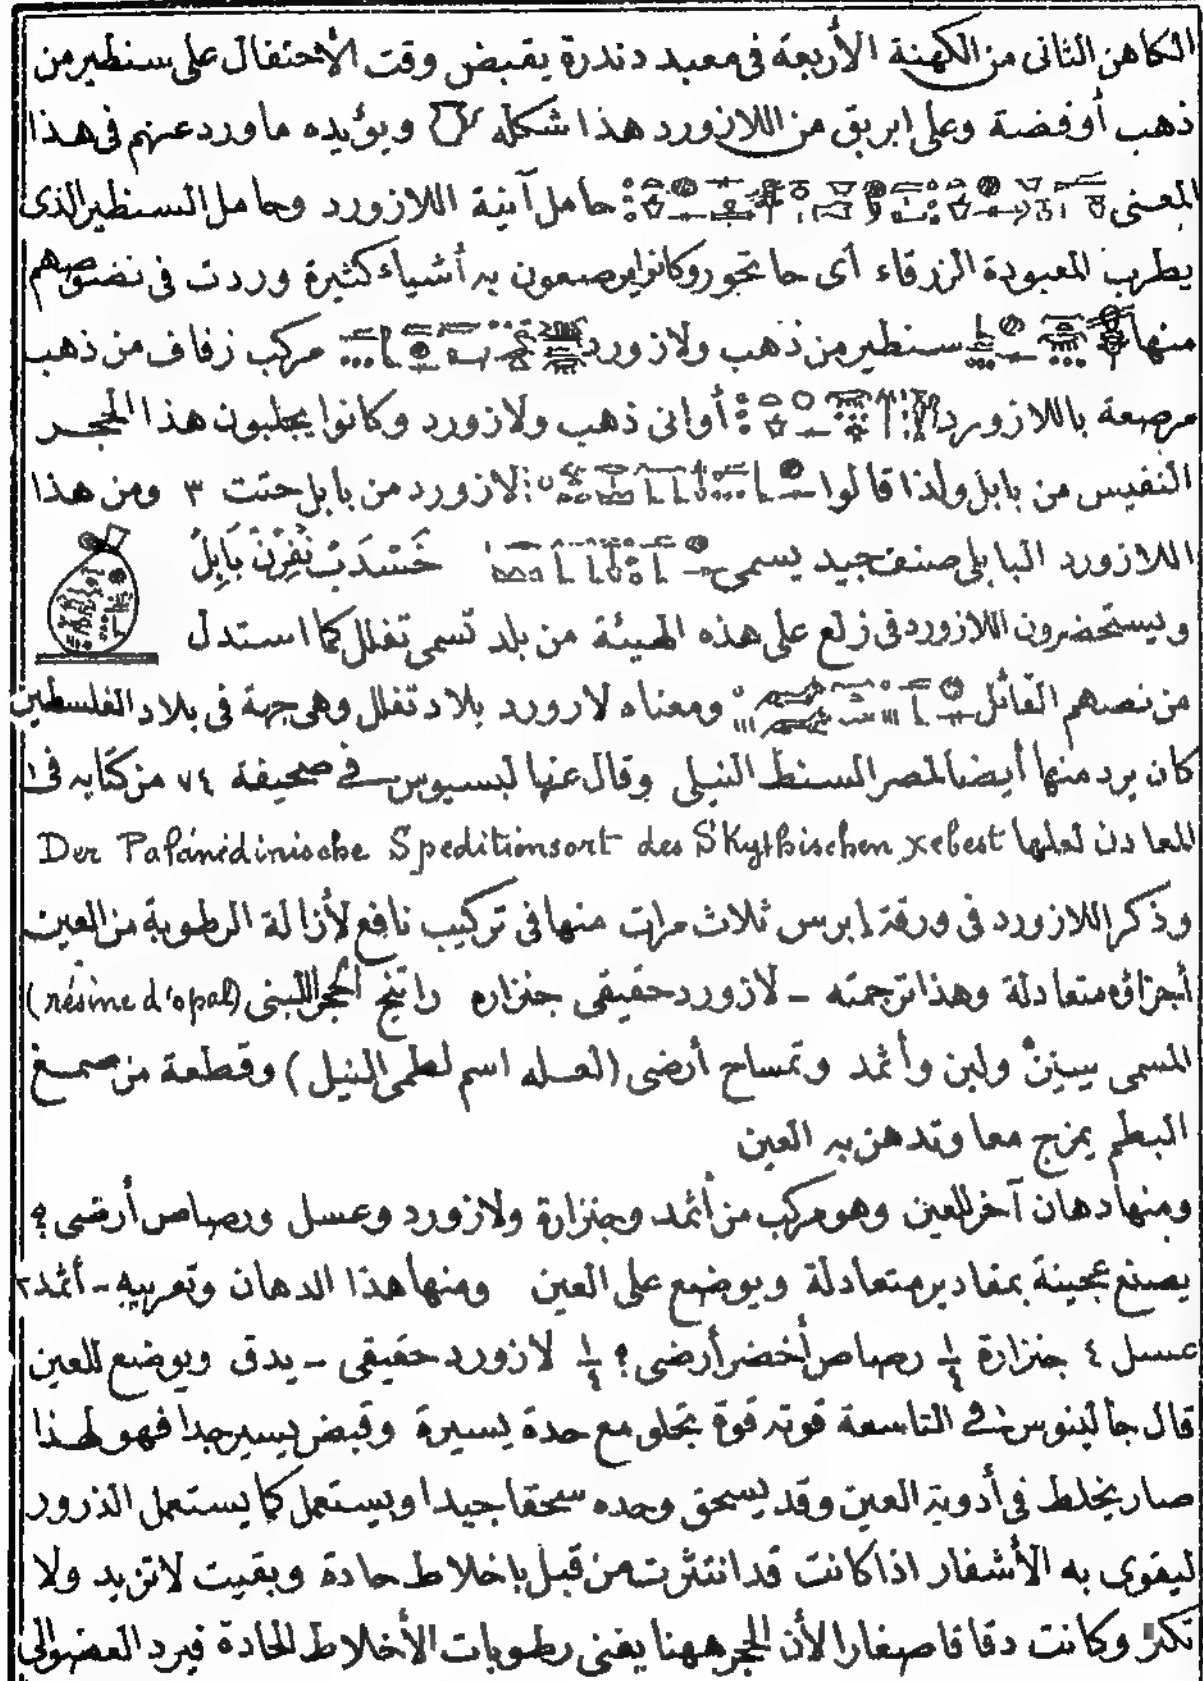 الكاهن الثانى من الكهنة الأربعة فى معبد دندرة يقبض وقت الأحتفال على سنطير من
ذهب أوفضة وعلى ابريق من اللازورد هذا شكله ويؤيده ماورد عنهم فى هذا
المعنى حامل آنية اللازورد وحامل السنطير الذى
يطرب المعبودة الزرقاء أى حاتحور وكانوا يرصعون به أشياء كثيرة وردت فى نصوصهم
منها سنطير من ذهب ولازورد مركب زفاف من ذهب
مرصعة باللازورد أوانى ذهب ولازورد وكانوا يجلبون هذا الحجر
النفيس من بابل ولذا قالوا لازورد من بابل حتت ٣ ومن هذا
اللازورد البابلى صنف جيد يسمى خَسْدَبْ نُفِرْنَ بَابِلُ
ويستحضرون اللازورد فى زلع على هذه الهيئة من بلد تسمى تفلل كما استدل
من نصهم القائل ومعناه لازورد بلاد تفلل وهى جهة فى بلاد الفلسطين
كان يرد منها أيضا لمصر السنط النيلى وقال عنها لبسيوس فى صحيفة ٧٤ من كتابه فى
المعادن لعلها Der Palänidinische Speditionsort des Skythischen xebest
وذكر اللازورد فى ورقة ابرس ثلاث مرات منها فى تركيب نافع لأزالة الرطوبة من العين
أجزاؤه متعادلة وهذا ترجمته - لازورد حقيقى جنزاره راتنج الحجر اللبنى (résine d'opal)
المسمى ولبن وأثمد وتمساح أرضى (لعله اسم لطمى النيل) وقطعة من صمغ
البطم يمزج معا وتدهن به العين
ومنها دهان آخر للعين وهو مركب من أثمد وجنزارة ولازورد وعسل ورصاص أرضى ؟
يصنع عجينة بمقادير متعادلة ويوضع على العين ومنها هذا الدهان وتعريبه - أثمد ٢
عسل ٤ جنزارة ١/٤ رصاص أخضر أرضى ؟ ١/٤ لازورد حقيقى - يدق ويوضع للعين
قال جالينوس فى التاسعة قوته قوة تجلو مع حدة يسيرة وقبض يسير جدا فهو لهذا
صار يخلط فى أدوية العين وقد يسحق وحده سحقا جيدا ويستعمل كما يستعمل الذرور
ليقوى به الأشفار اذا كانت قد انتثرت من قبل باخلاط حادة وبقيت لاتزيد ولا
تكثر وكانت دقاقا صغارا لأن الحجر ههنا يفنى رطوبات الأخلاط الحادة فيرد العضو الى